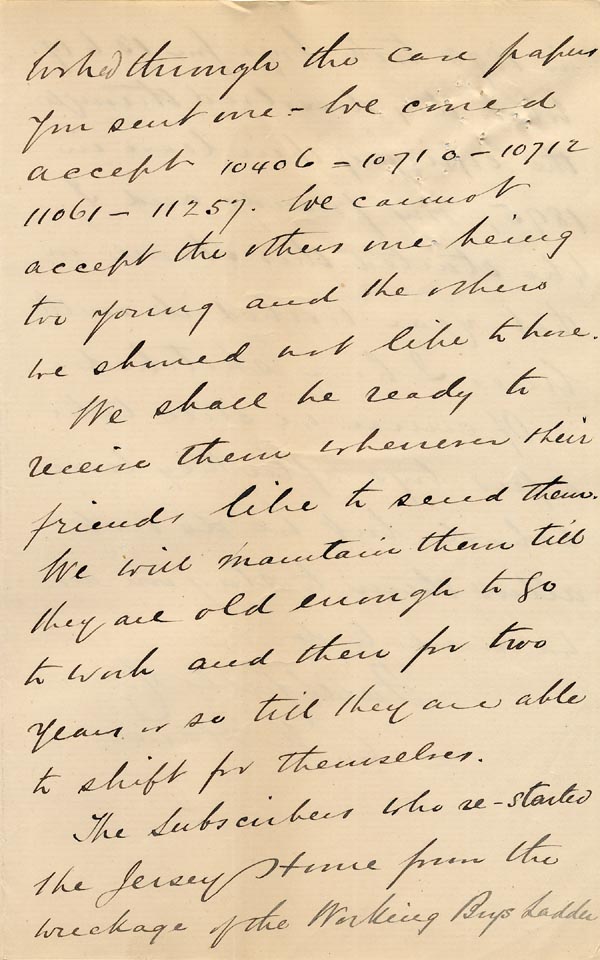 looked through the case papers
you sent me - We could
accept 10406 - 10710 - 10712
11061 - 11257. We cannot
accept the others one being
too young and the others
we should not like to have.
We shall be ready to
receive them whenever their
friends like to send them.
We will maintain them till
they are old enough to go
to work and then for two
years or so till they are able
to shift for themselves.
The Subscribers who re-started
the Jersey Home from the
wreckage of the Working Boys Ladder